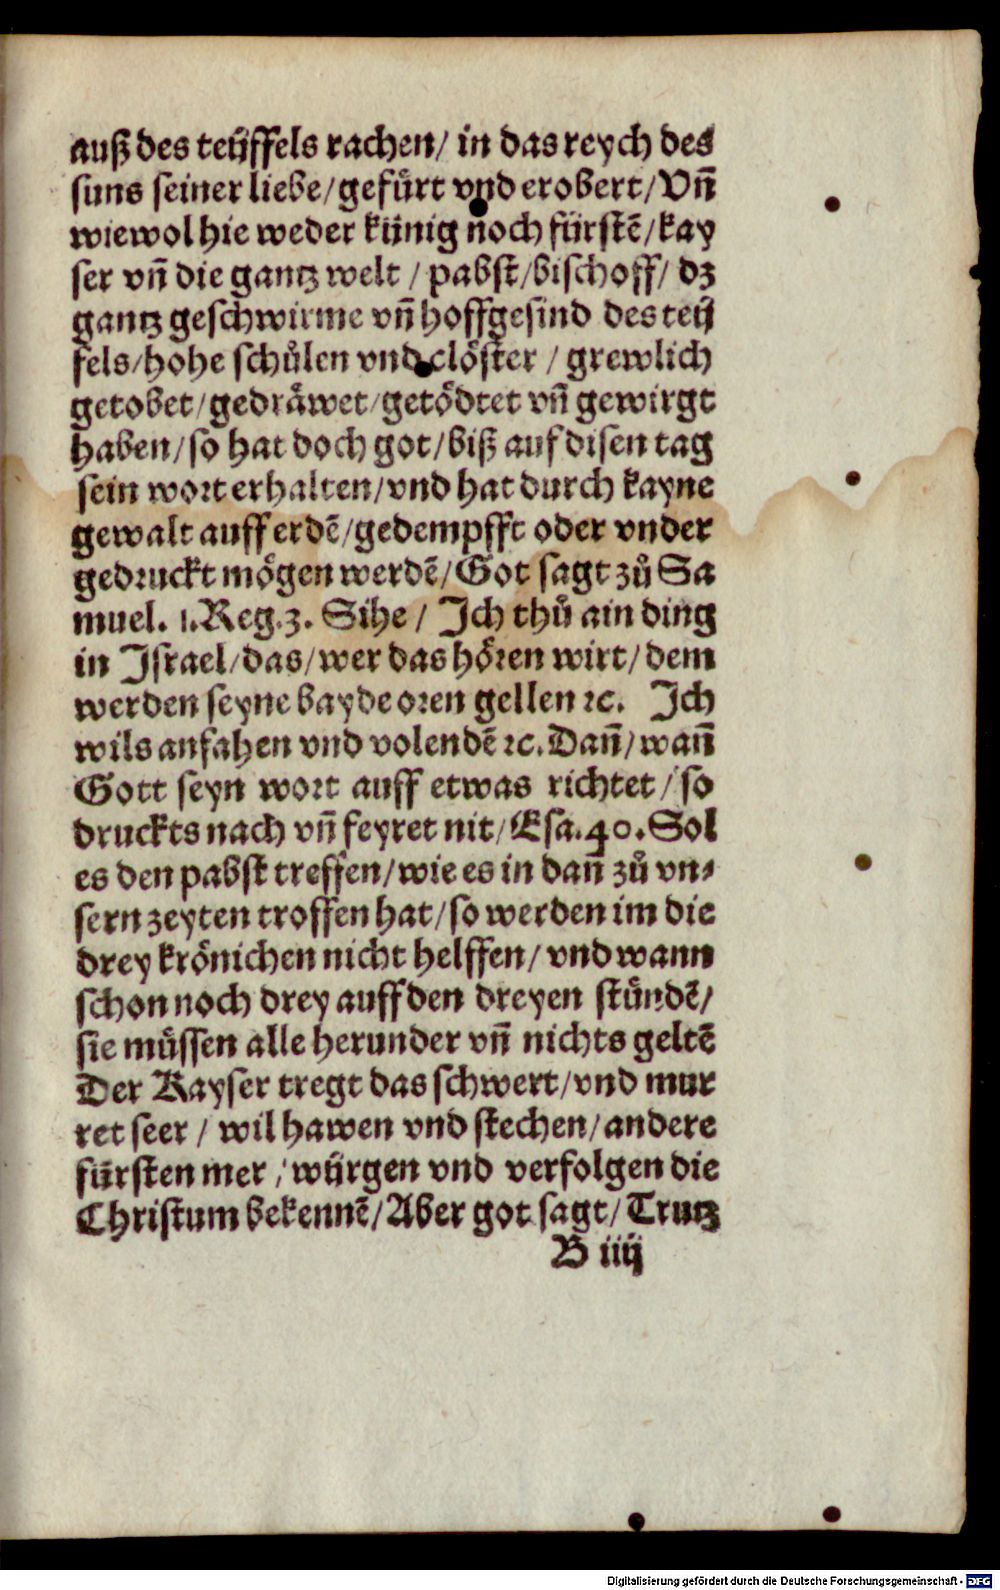 auß des teüffels rachen/ in das reych des
suns seiner liebe/gefürt vnd erobert/Vñ
wiewol hie weder künig noch fürstē/kay
ser vñ die gantz welt / pabst/bischoff/ dz
gantz geschwirme vñ hoffgesind des teü
fels/hohe schůlen vnd clöster / grewlich
getobet/gedräwet/getödtet vñ gewirgt
haben/so hat doch got/biß auf disen tag
sein wort erhalten/vnd hat durch kayne
gewalt auff erdē/gedempfft oder vnder
gedruckt mögen werdē/Got sagt zů Sa
muel. 1.Reg.3. Sihe / Ich thů ain ding
in Israel/das/wer das hören wirt/dem
werden seyne bayde oren gellen ꝛc. Ich
wils anfahen vnd volendē ꝛc. Dañ/wañ
Gott seyn wort auff etwas richtet / so
druckts nach vñ feyret nit/Esa.40.Sol
es den pabst treffen/wie es in dañ zů vn⸗
sern zeyten troffen hat/so werden im die
drey krönichen nicht helffen/ vnd wann
schon noch drey auff den dreyen stündē/
sie müssen alle herunder vñ nichts geltē
Der Kayser tregt das schwert/vnd mur
ret seer / wil hawen vnd stechen/andere
fürsten mer / würgen vnd verfolgen die
Christum bekennē/Aber got sagt/Trutz
B iiij
Digitalisierung gefördert durch die Deutsche Forschungsgemeinschaft - DFG